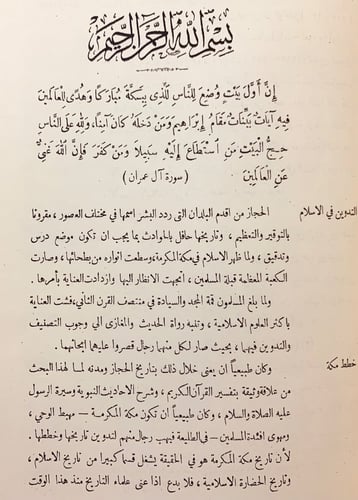 بِسْمِ اللهِ الرَّحْمَنِ الرَّحِيمِ
إِنَّ أَوَّلَ بَيْتٍ وُضِعَ لِلنَّاسِ لَلَّذِي بِبَكَّةَ مُبَارَكًا وَهُدًى لِلْعَالَمِينَ
فِيهِ آيَاتٌ بَيِّنَاتٌ مَقَامُ إِبْرَاهِيمَ وَمَنْ دَخَلَهُ كَانَ آمِنًا، وَلِلَّهِ عَلَى النَّاسِ
حِجُّ الْبَيْتِ مَنِ اسْتَطَاعَ إِلَيْهِ سَبِيلًا وَمَنْ كَفَرَ فَإِنَّ اللهَ غَنِيٌّ
عَنِ الْعَالَمِينَ (سورة آل عمران)
التدوين في الاسلام
الحجاز من اقدم البلدان التى ردد البشر اسمها في مختلف العصور، مقرونا
بالتوقير والتعظيم، وتاريخها حافل بالحوادث بما يجب ان تكون موضع درس
وتدقيق، ولما ظهر الاسلام في مكة المكرمة، وسطعت انواره من بطائحها، وصارت
الكعبة المعظمة قبلة المسلمين، اتجهت الانظار اليها وازدادت العناية بأمرها.
ولما بلغ المسلمون قمة المجد والسيادة في منتصف القرن الثانى، فشت العناية
باكثر العلوم الاسلامية، وتنبه رواة الحديث والمغازى الى وجوب التصنيف
والتدوين فيهما، بحيث صار لكل منهما رجال قصروا عليهم ابحاثهما.
خطط مكة
وكان طبيعيا ان يعنى خلال ذلك بتاريخ الحجاز ومدنه لما لهذا البحث
من علاقة وثيقة بتفسير القرآن الكريم، وشرح الاحاديث النبوية وسيرة الرسول
عليه الصلاة والسلام، وكان طبيعيا ان تكون مكة المكرمة – مهبط الوحي،
ومهوى افئدة المسلمين – في الطليعة فيهب رجال منهم لتدوين تاريخها وخططها،
لأن تاريخ مكة المكرمة هو في الحقيقة يشغل قسما كبيرا من تاريخ الاسلام،
وتاريخ الحضارة الاسلامية، فلا بدع اذا عنى علماء التاريخ منذ هذا الوقت